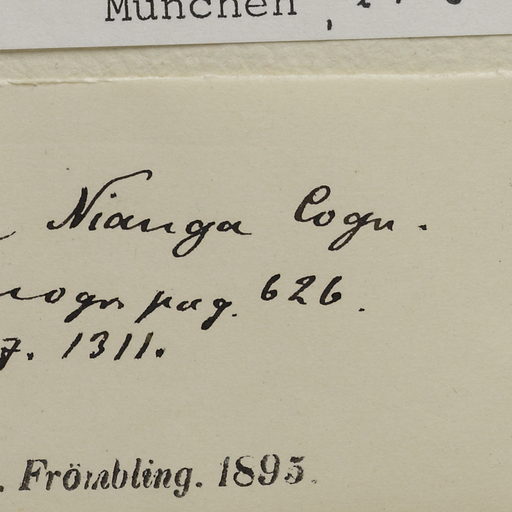 München
Nianga Cogn.
pag. 626.
1311.
Frömbling. 1895.